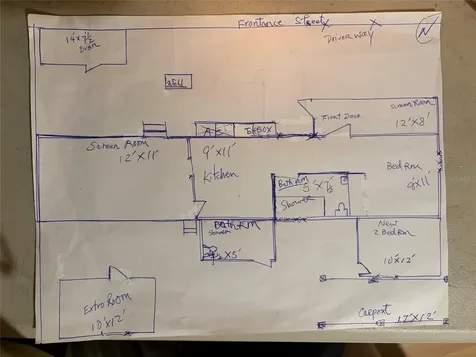 Frontance Street
N
14'X7½
Driver way
Screen Room
12'X8'
Front Door
A/C
E/BOX
Screen Room
12'X11'
9'X11'
Kitchen
Bed Rm
9'X11'
Bath Rm
5'X7½
Shower
Bath Rm
Shower
X5'
New
2 Bed Rm
10'X12'
Extro Room
10'X12'
Carport
17'X12'